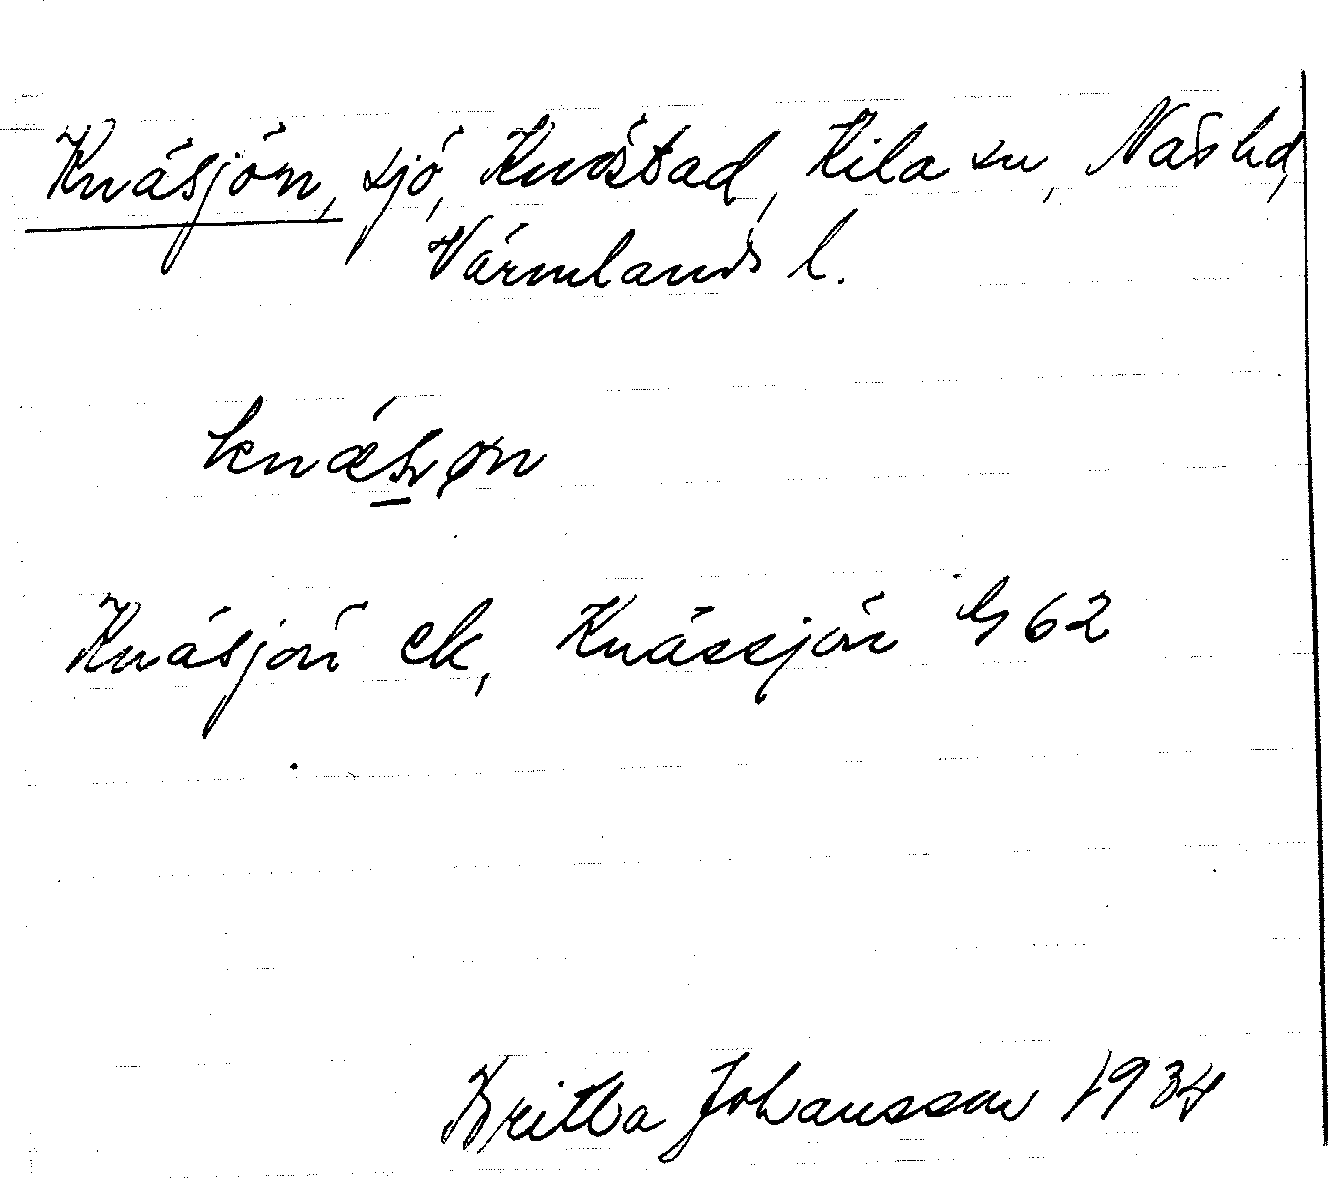 Knäsjön, sjö, Knöstad, Kila sn, Näs hd,
Värmlands l.
knæ´sjøn
Knäsjön ek, Knässjön G 62
Britta Johansson 1934